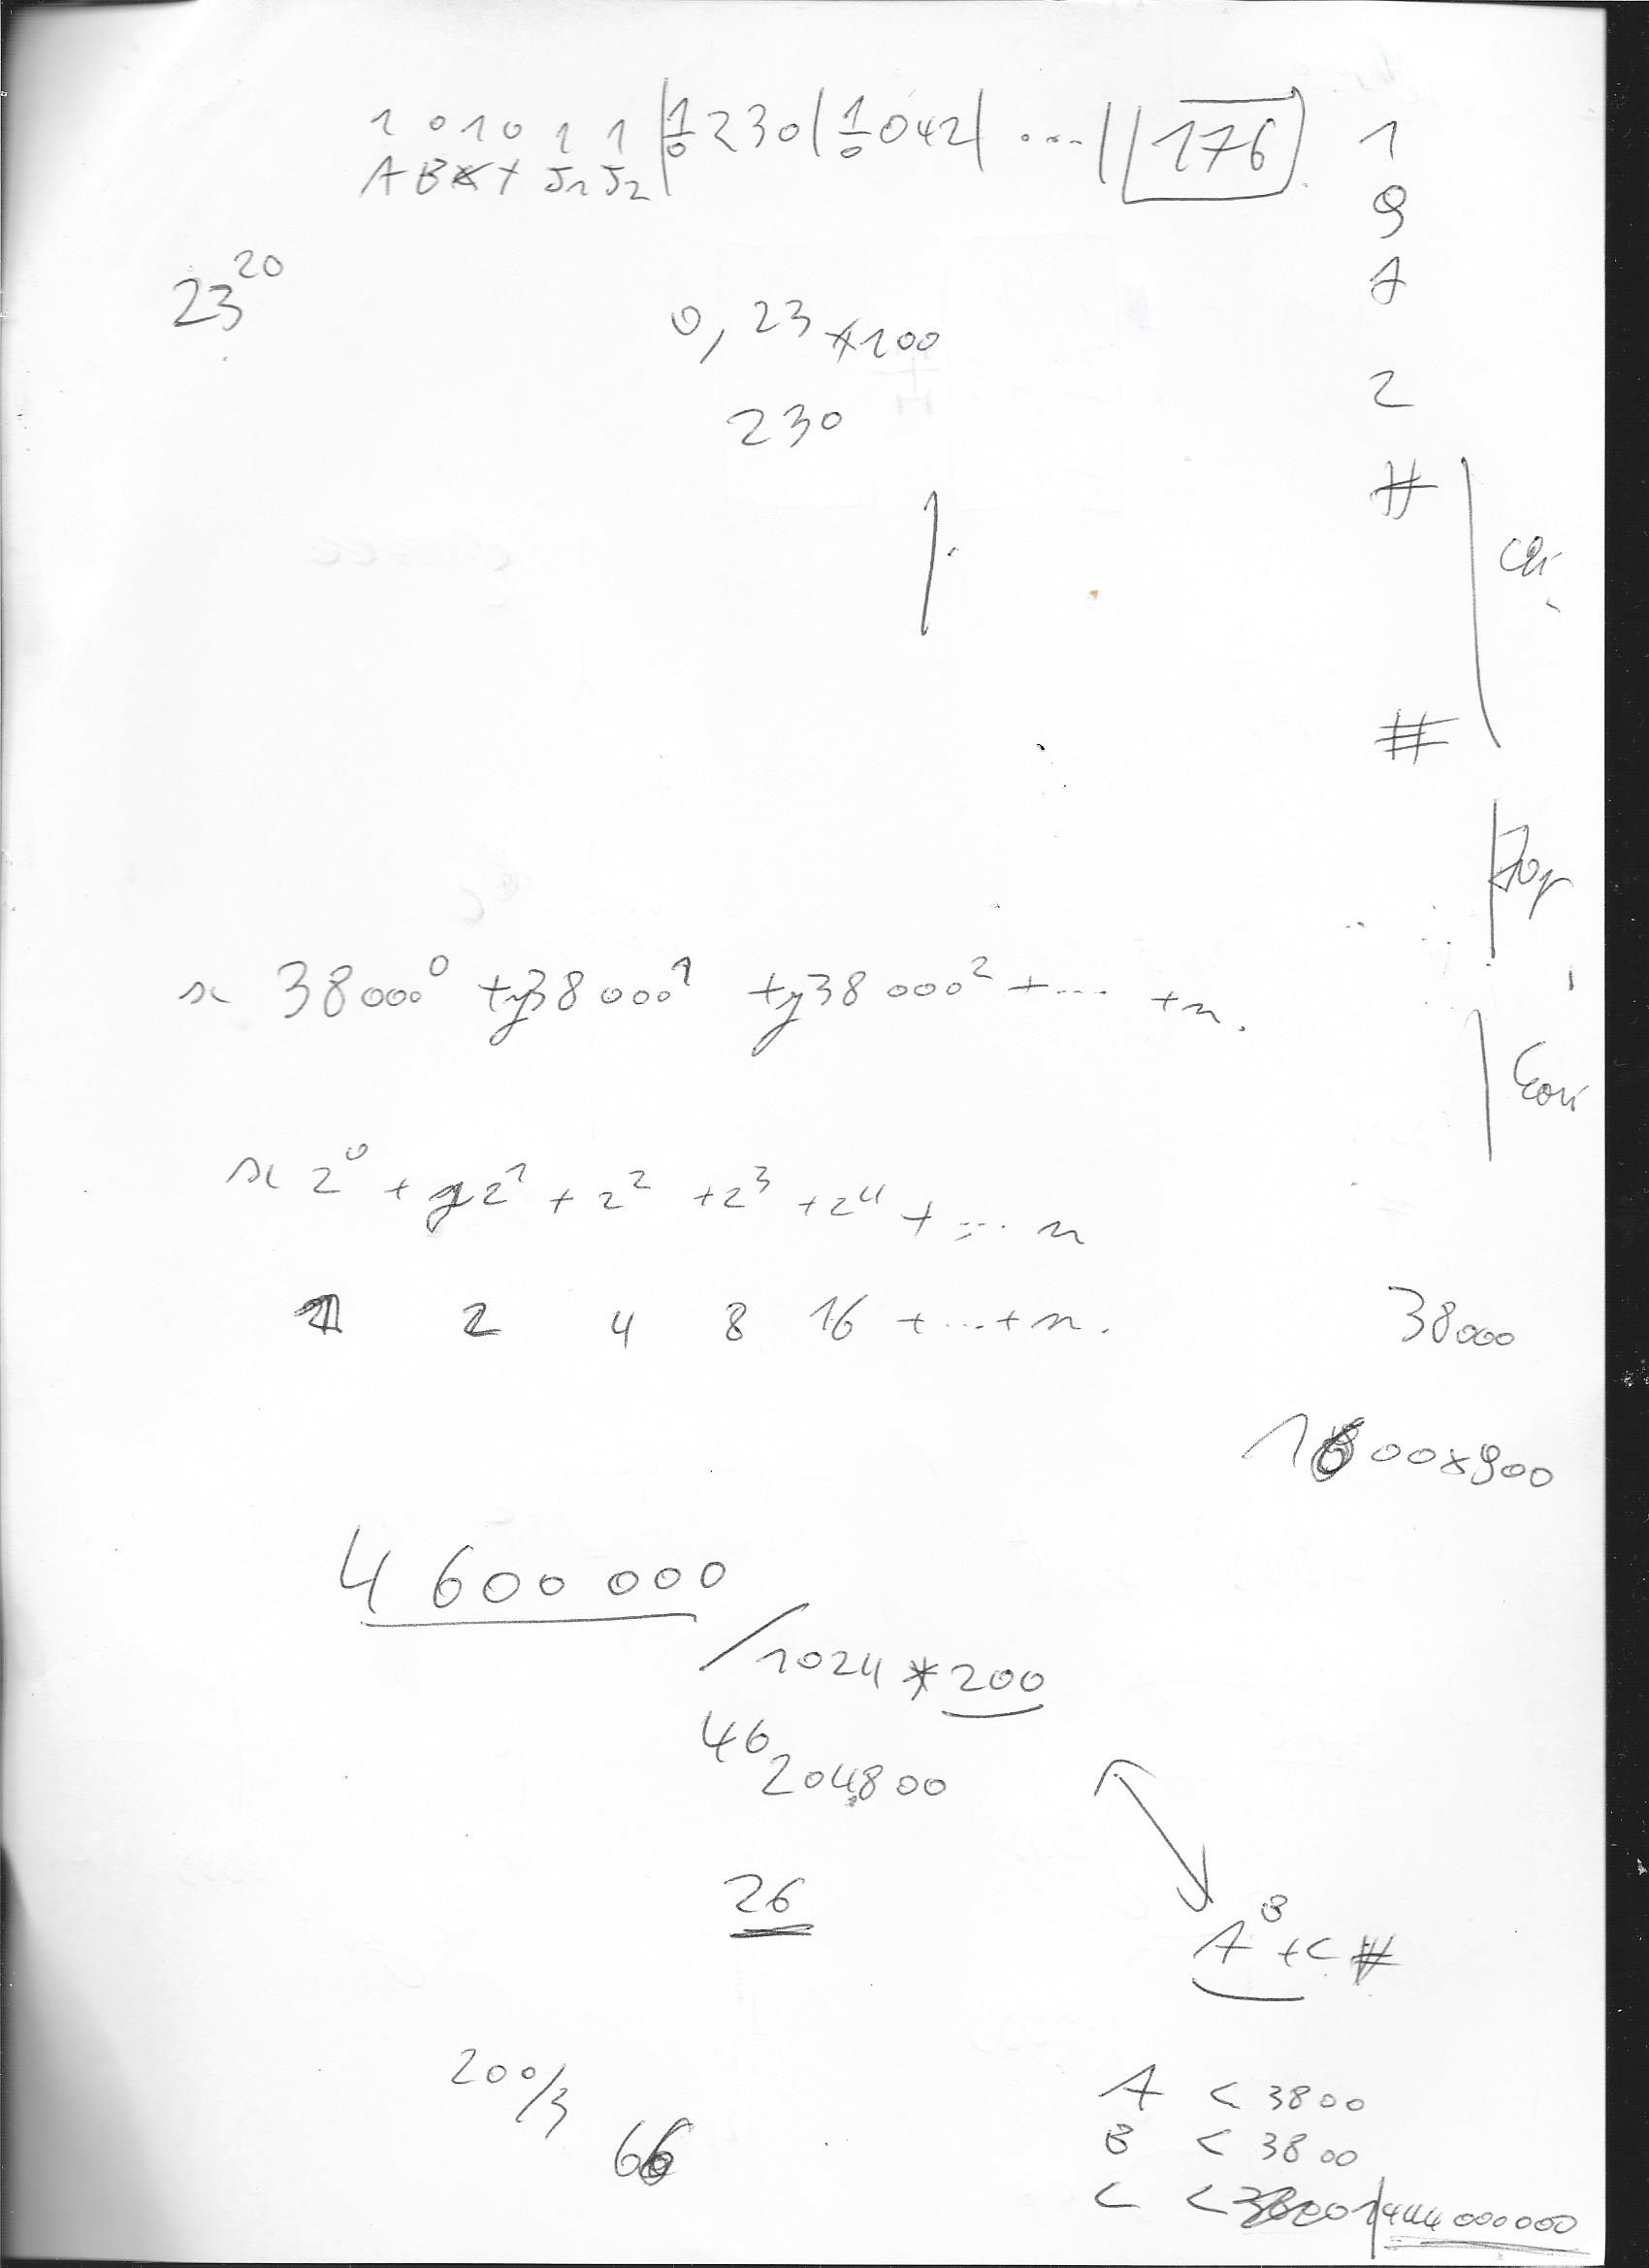 1 0 1 0 1 1 | 1/0 230 | 1/0 042 | ... | | 176
A B X Y J1 J2
1
9
A
2
#
#
23^20
0,23 * 100
230
x 38000^0 + y38000^1 + y38000^2 + ... + n.
x 2^0 + y2^1 + 2^2 + 2^3 + 2^4 + ... n
1 2 4 8 16 + ... + n.
38000
1600x900
4 600 000
/1024 * 200
46
204800
26
A^B + C #
200/3
66
A < 3800
B < 3800
C <
444 000 000